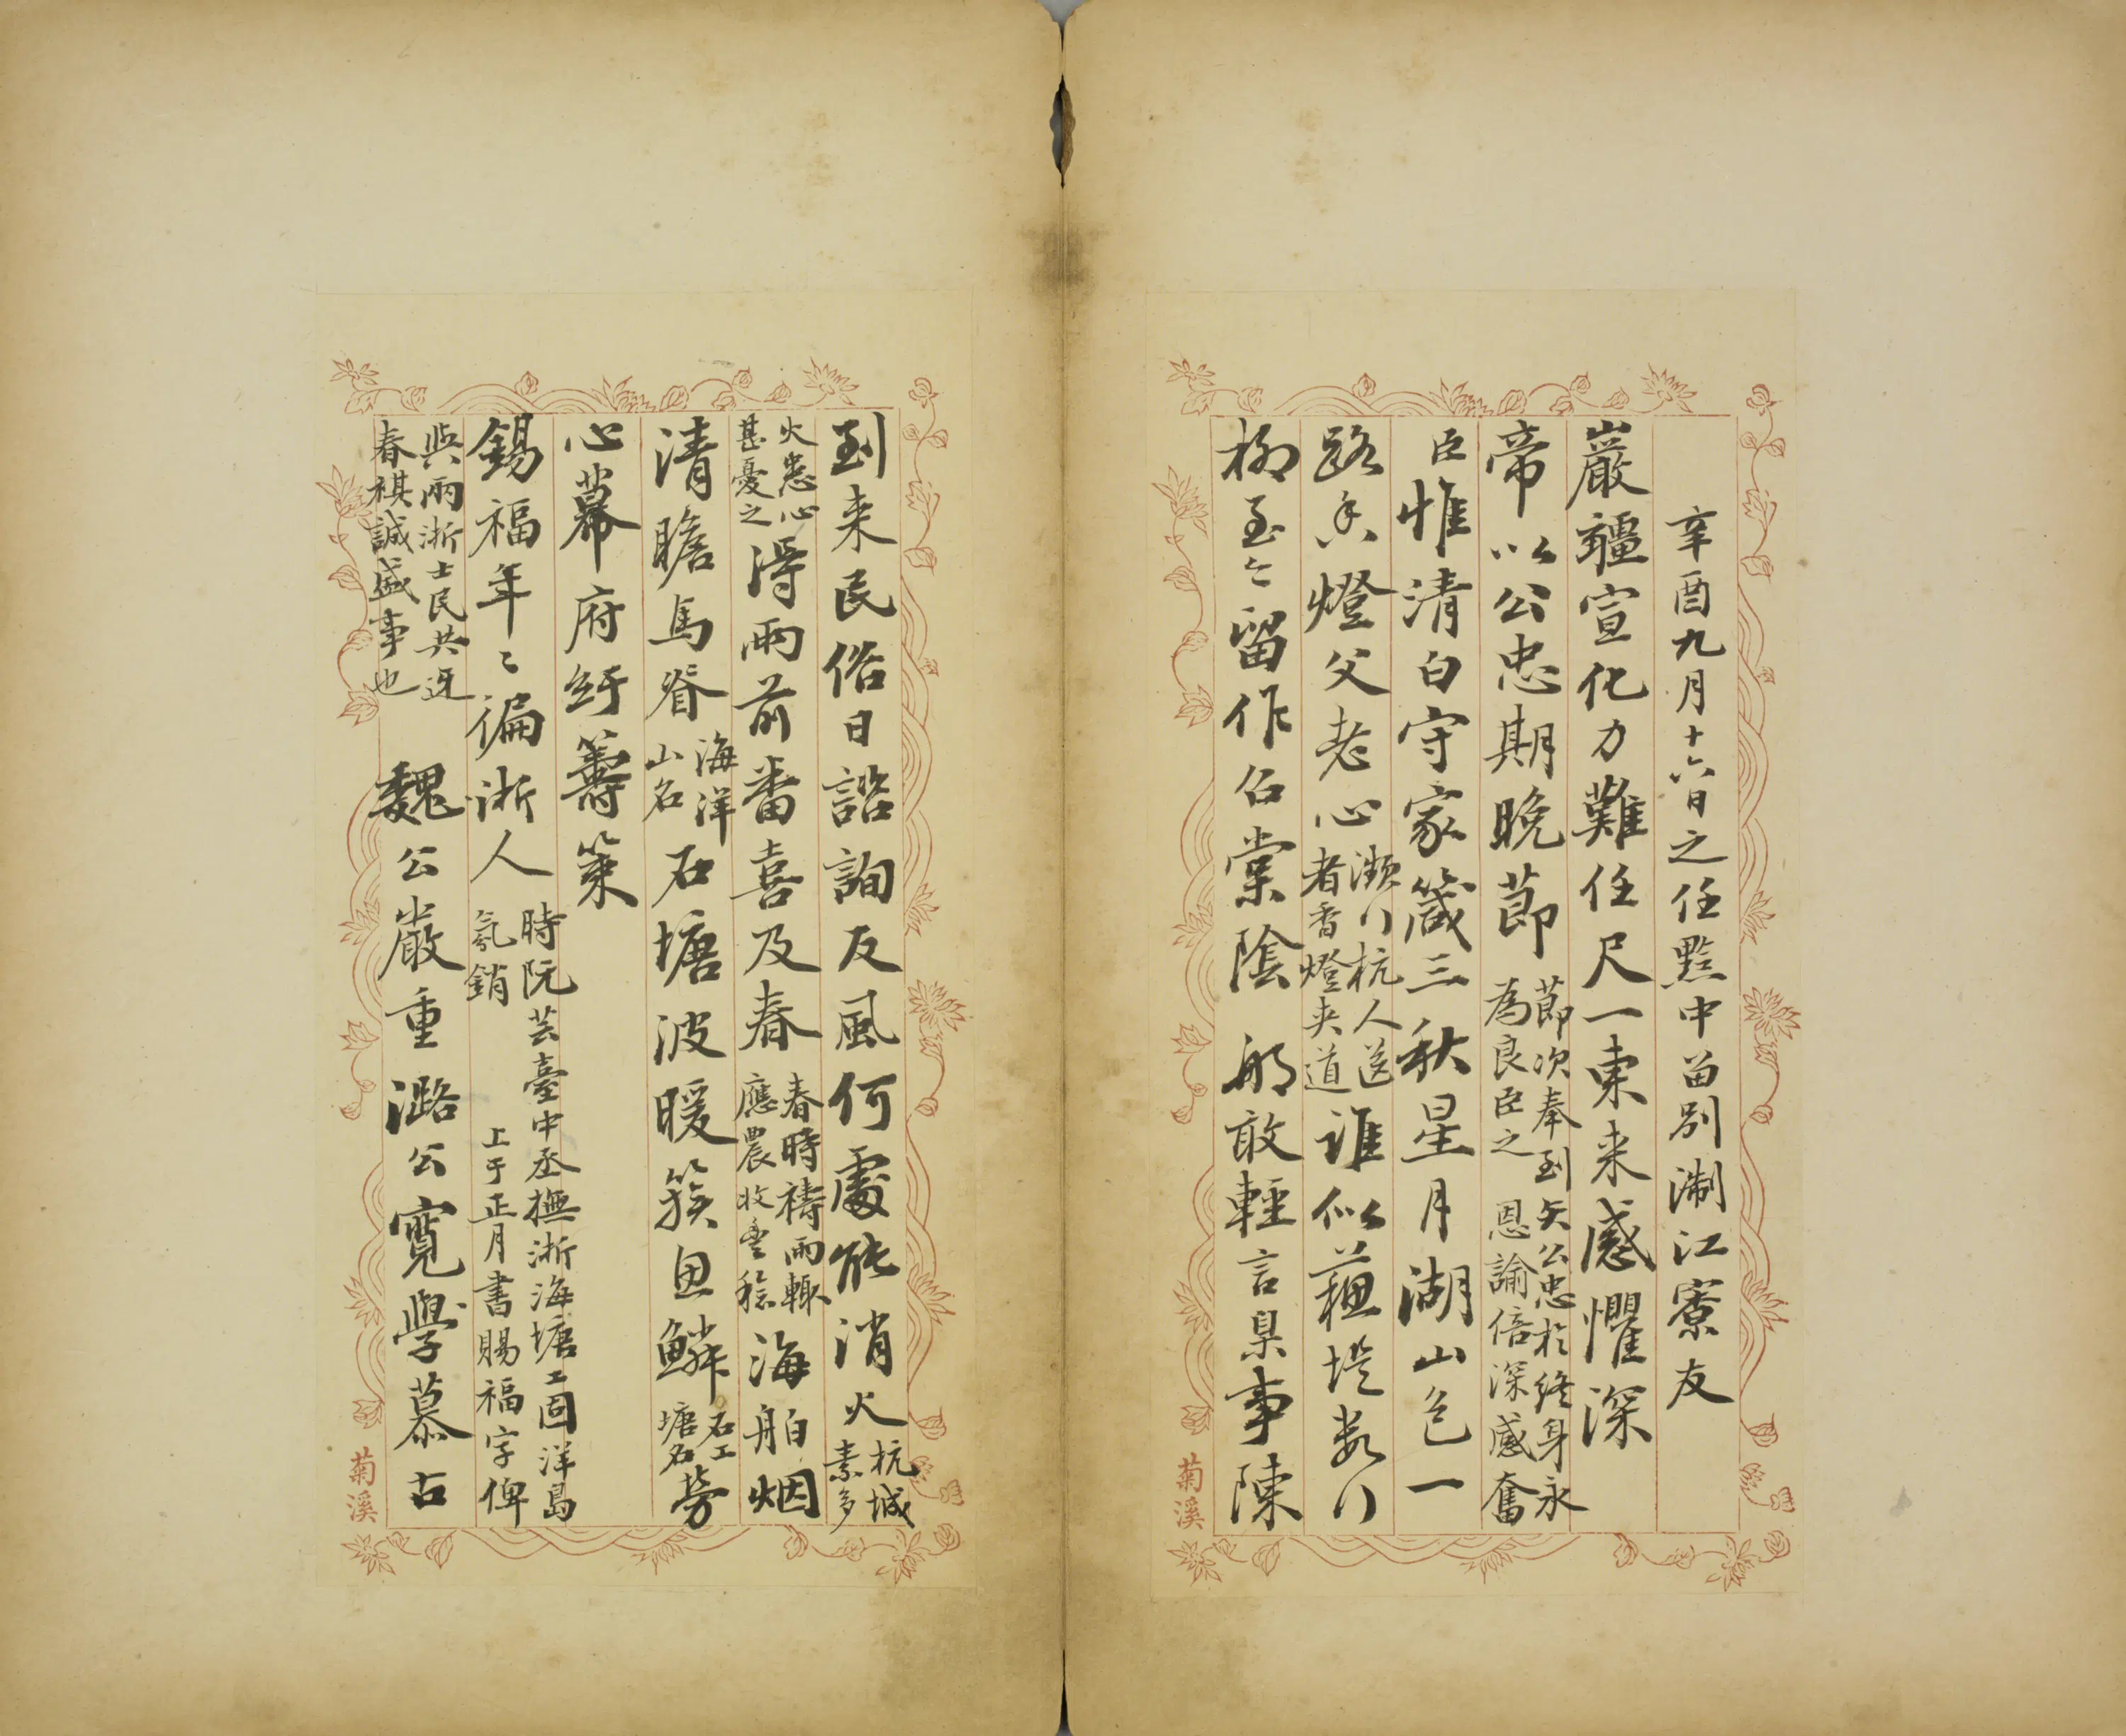 辛酉九月十六日之任黔中留別淛江寮友
巖疆宣化力難任尺一東来感懼深
帝以公忠期晚莭莭次奉到矢公忠於終身永
為良臣之 恩諭倍深感奮
臣惟清白守家箴三秋星月湖山色一
路香燈父老心瀕行杭人送
者香燈夹道誰似蘓堤數行
柳至今留作召棠陰 那敢輕言臬事陳
到来民俗日諮詢反風何處能消火杭城
素多
火患心
甚憂之得雨前番喜及春春時禱雨輙
應農收豊稔海舶烟
清瞻馬脊海洋
山名石塘波暖簇魚鱗石工
塘名勞
心幕府紆籌策
錫福年〻徧浙人時阮芸臺中丞撫浙海塘工固洋島
氛銷 上于正月書賜福字俾
與兩浙士民共迓
春祺誠盛事也 魏公嚴重潞公寛學慕古
菊溪
菊溪